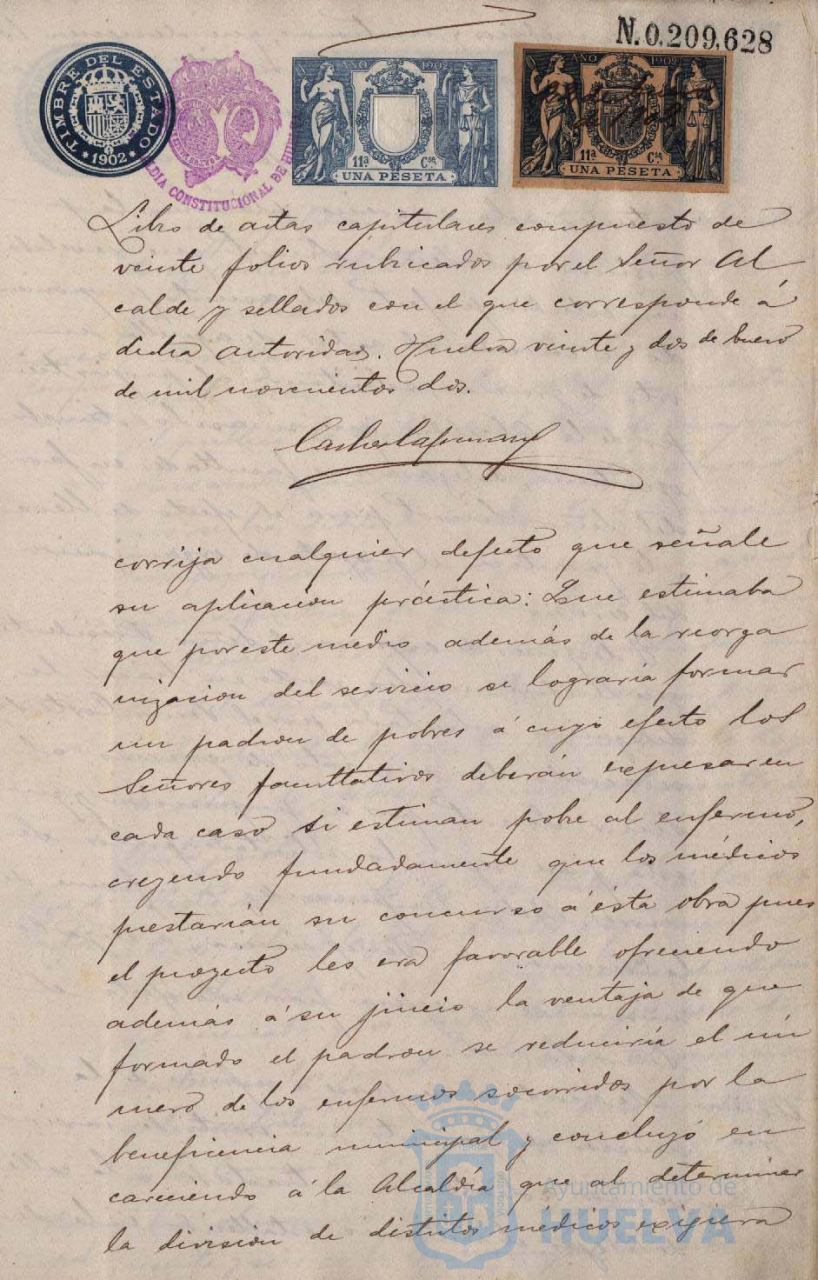 N.0,209,628
TIMBRE DEL ESTADO
1902
ALDIA CONSTITUCIONAL DE HU
AÑO 1902
11ª Cse
UNA PESETA
AÑO 1902
11ª Cse
UNA PESETA
Libro de actas capitulares compuesto de
veinte folios rubricados por el Señor Al
calde y sellados con el que corresponde á
dicha autoridad. Huelva veinte y dos de Enero
de mil novecientos dos.
corrija cualquier defecto que señale
su aplicacion práctica: Que estimaba
que por este medio además de la reorga
nizacion del servicio se lograría formar
un padron de pobres á cuyo efecto los
Señores facultativos deberán expresar en
cada caso si estiman pobre al enfermo,
creyendo fundadamente que los médicos
prestarian su concurso á ésta obra pues
el proyecto les era favorable ofreciendo
además á su juicio la ventaja de que
formado el padron se reduciría el nú
mero de los enfermos socorridos por la
beneficencia municipal y concluyó en
careciendo á la Alcaldía que al determinar
la division de distritos medicos exigiera
Ayuntamiento de
HUELVA